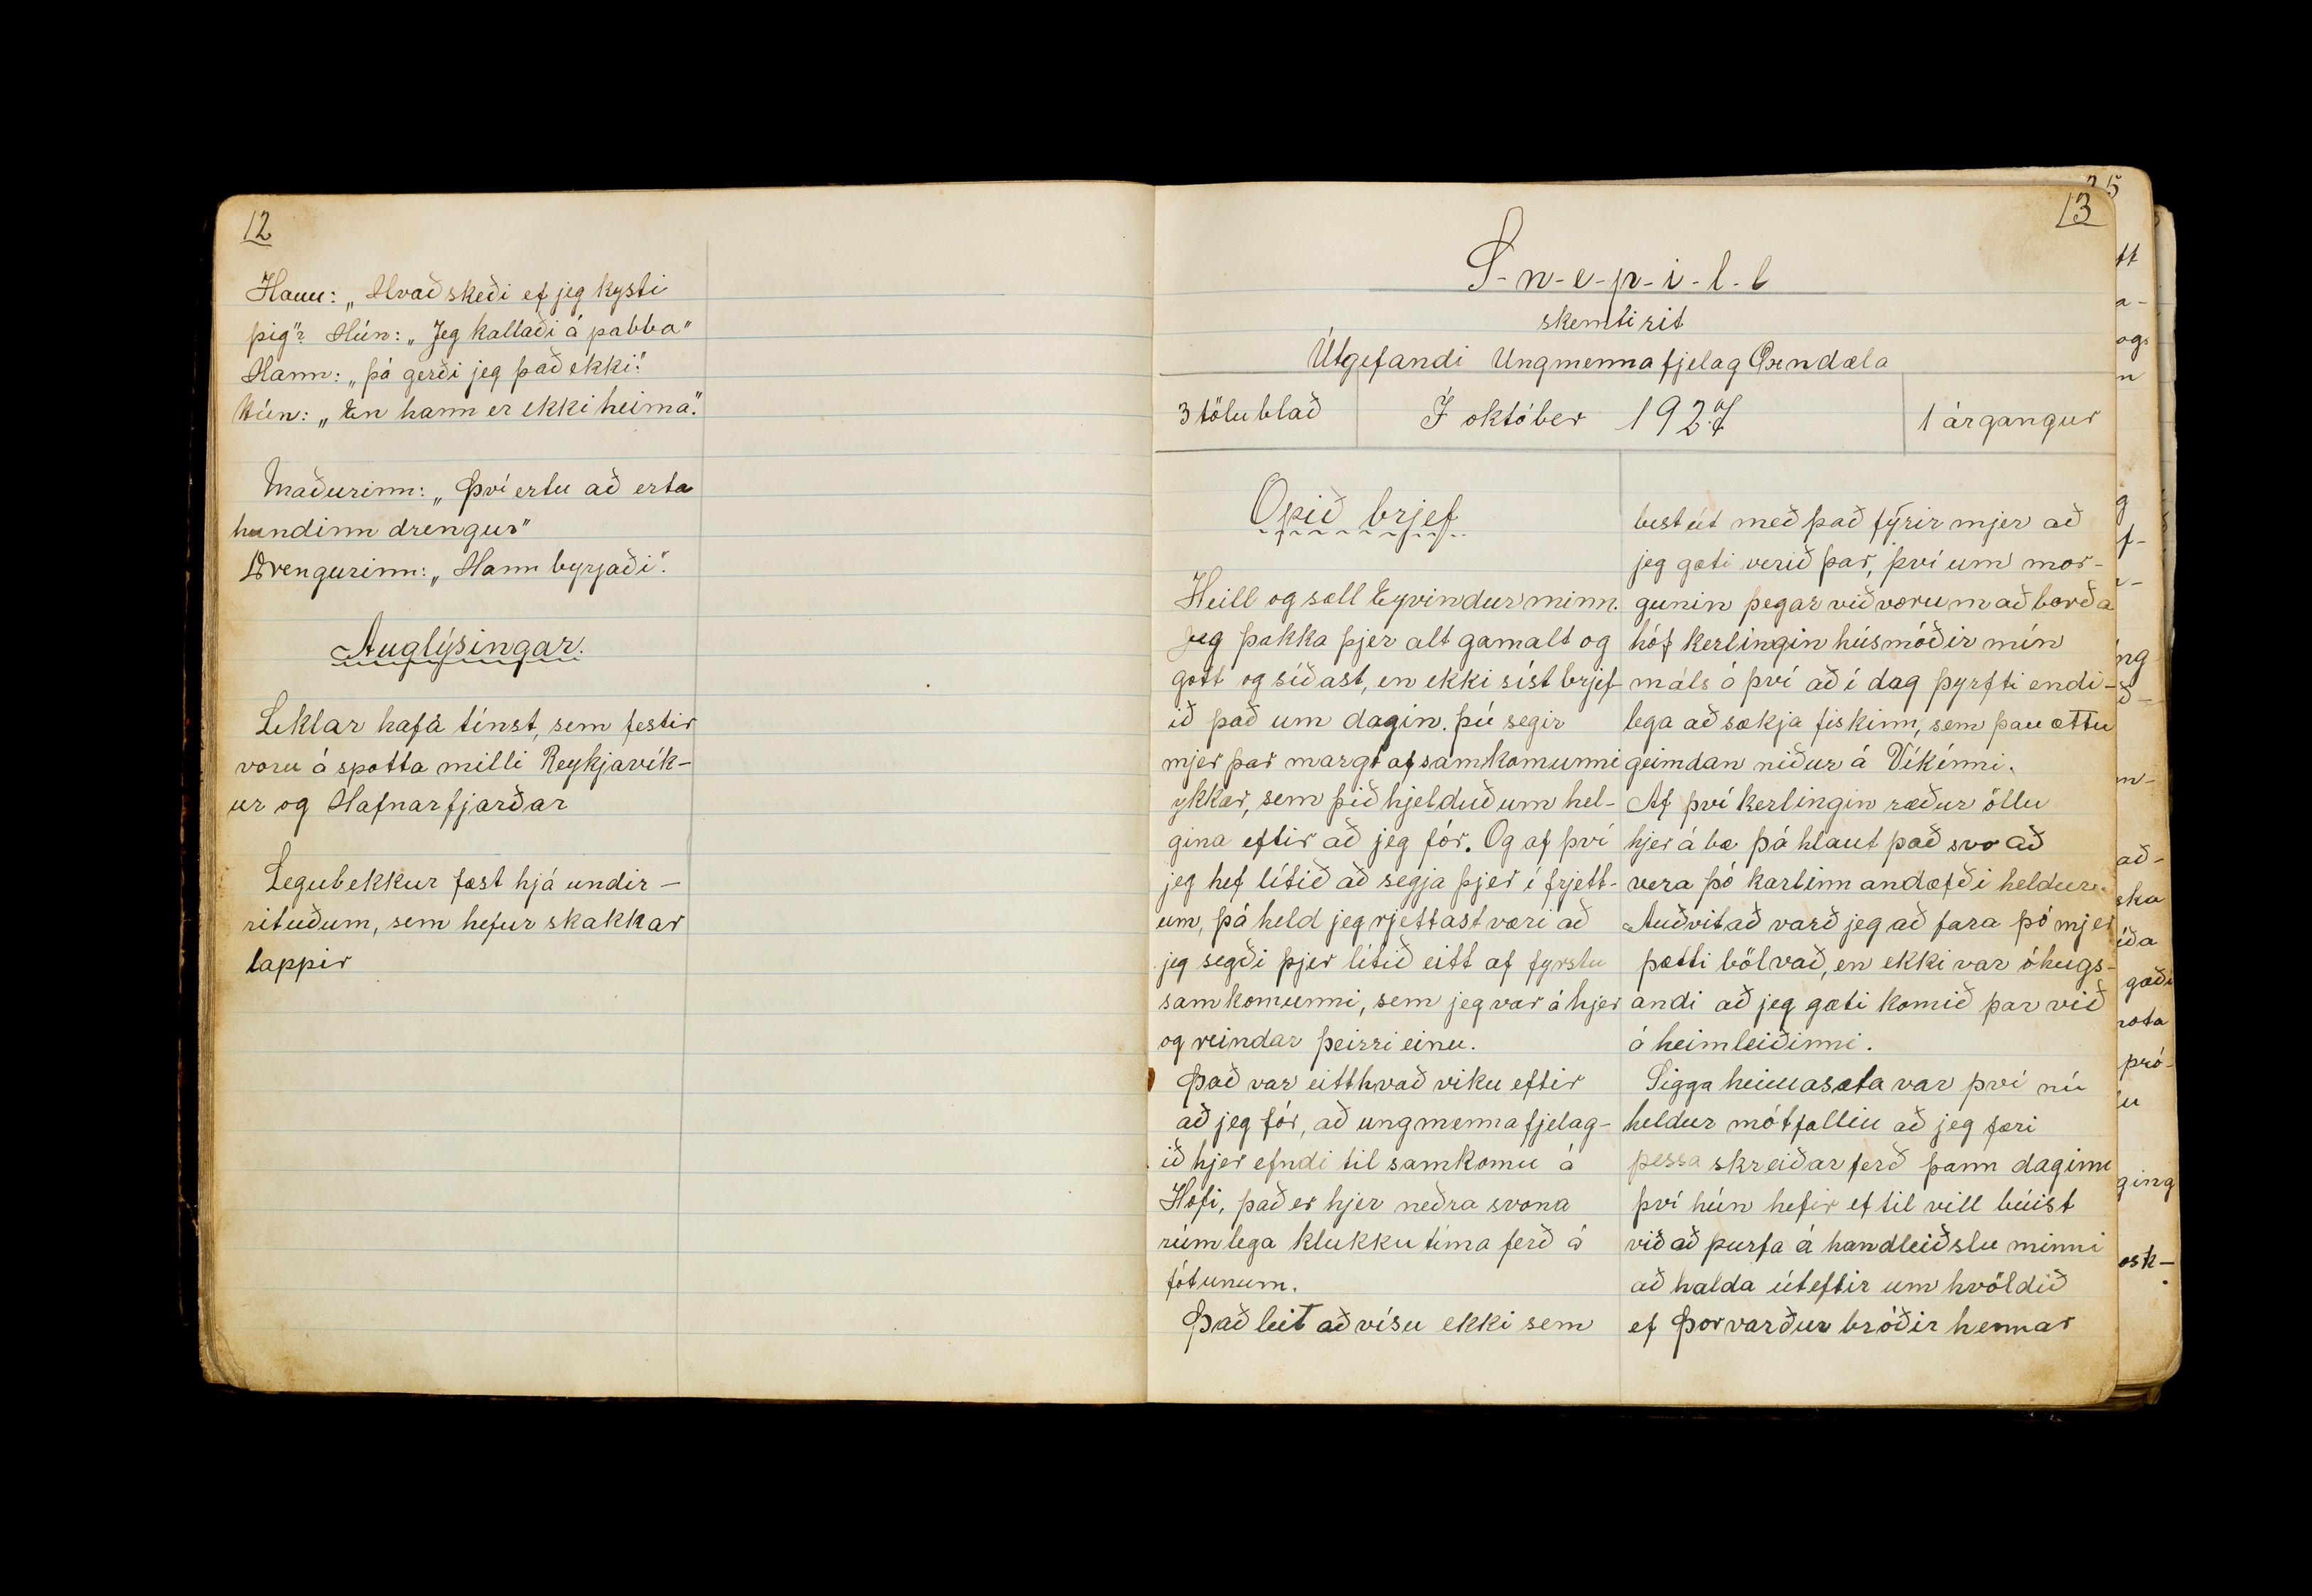 12
Hann: „Hvað skeði ef jeg kysti
þig"? Hún: „Jeg kallaði á pabba"
Hann: „þá gerði jeg það ekki."
Hún: „En hann er ekki heima."
Maðurinn: „Því ertu að erta
hundinn drengur"
Drengurinn: „Hann byrjaði".
Auglýsingar.
Leklar hafa tínst, sem festir
voru á spotta milli Reykjavík-
ur og Hafnarfjarðar
Legubekkur fæst hjá undir-
rituðum, sem hefur skakkar
lappir
13
S-n-e-p-i-l-l
skemtirit
Útgefandi Ungmennafjelag Öxndæla
3 tölublað
Í október 1927
1 árgangur
Opið brjef
Heill og sæll Eyvindur minn.
Jeg þakka þjer alt gamalt og
gott og síðast, en ekki síst brjef-
ið það um dagin. þú segir
mjer þar margt af samkomunni
ykkar, sem þið hjelduð um hel-
gina eftir að jeg fór. Og af því
jeg hef lítið að segja þjer í frjett-
um, þá held jeg rjettast væri að
jeg segði þjer lítið eitt af fyrstu
samkomunni, sem jeg var á hjer
og reindar þeirri einu.
Það var eitthvað viku eftir
að jeg fór, að ungmennafjelag-
ið hjer efndi til samkomu á
Hofi, það er hjer neðra svona
rúmlega klukkutíma ferð á
fótunum.
Það leit að vísu ekki sem
best út með það fýrir mjer að
jeg gæti verið þar, því um mor-
gunin þegar við vorum að borða
hóf kerlingin húsmóðir mín
máls á því að í dag þyrfti endi-
lega að sækja fiskinn, sem þau ættu
geimdan niður á Víkinni.
Af því kerlingin ræður öllu
hjer á bæ þá hlaut það svo að
vera þó karlinn andæfði heldur.
Auðvitað varð jeg að fara þó mjer
þætti bölvað, en ekki var óhugs-
andi að jeg gæti komið þar við
á heimleiðinni.
Sigga heimasæta var því nú
heldur mótfallin að jeg færi
þessa skreiðarferð þann daginn
því hún hefir ef til vill búist
við að þurfa á handleiðslu minni
að halda úteftir um kvöldið
ef Þorvarður bróðir hennar